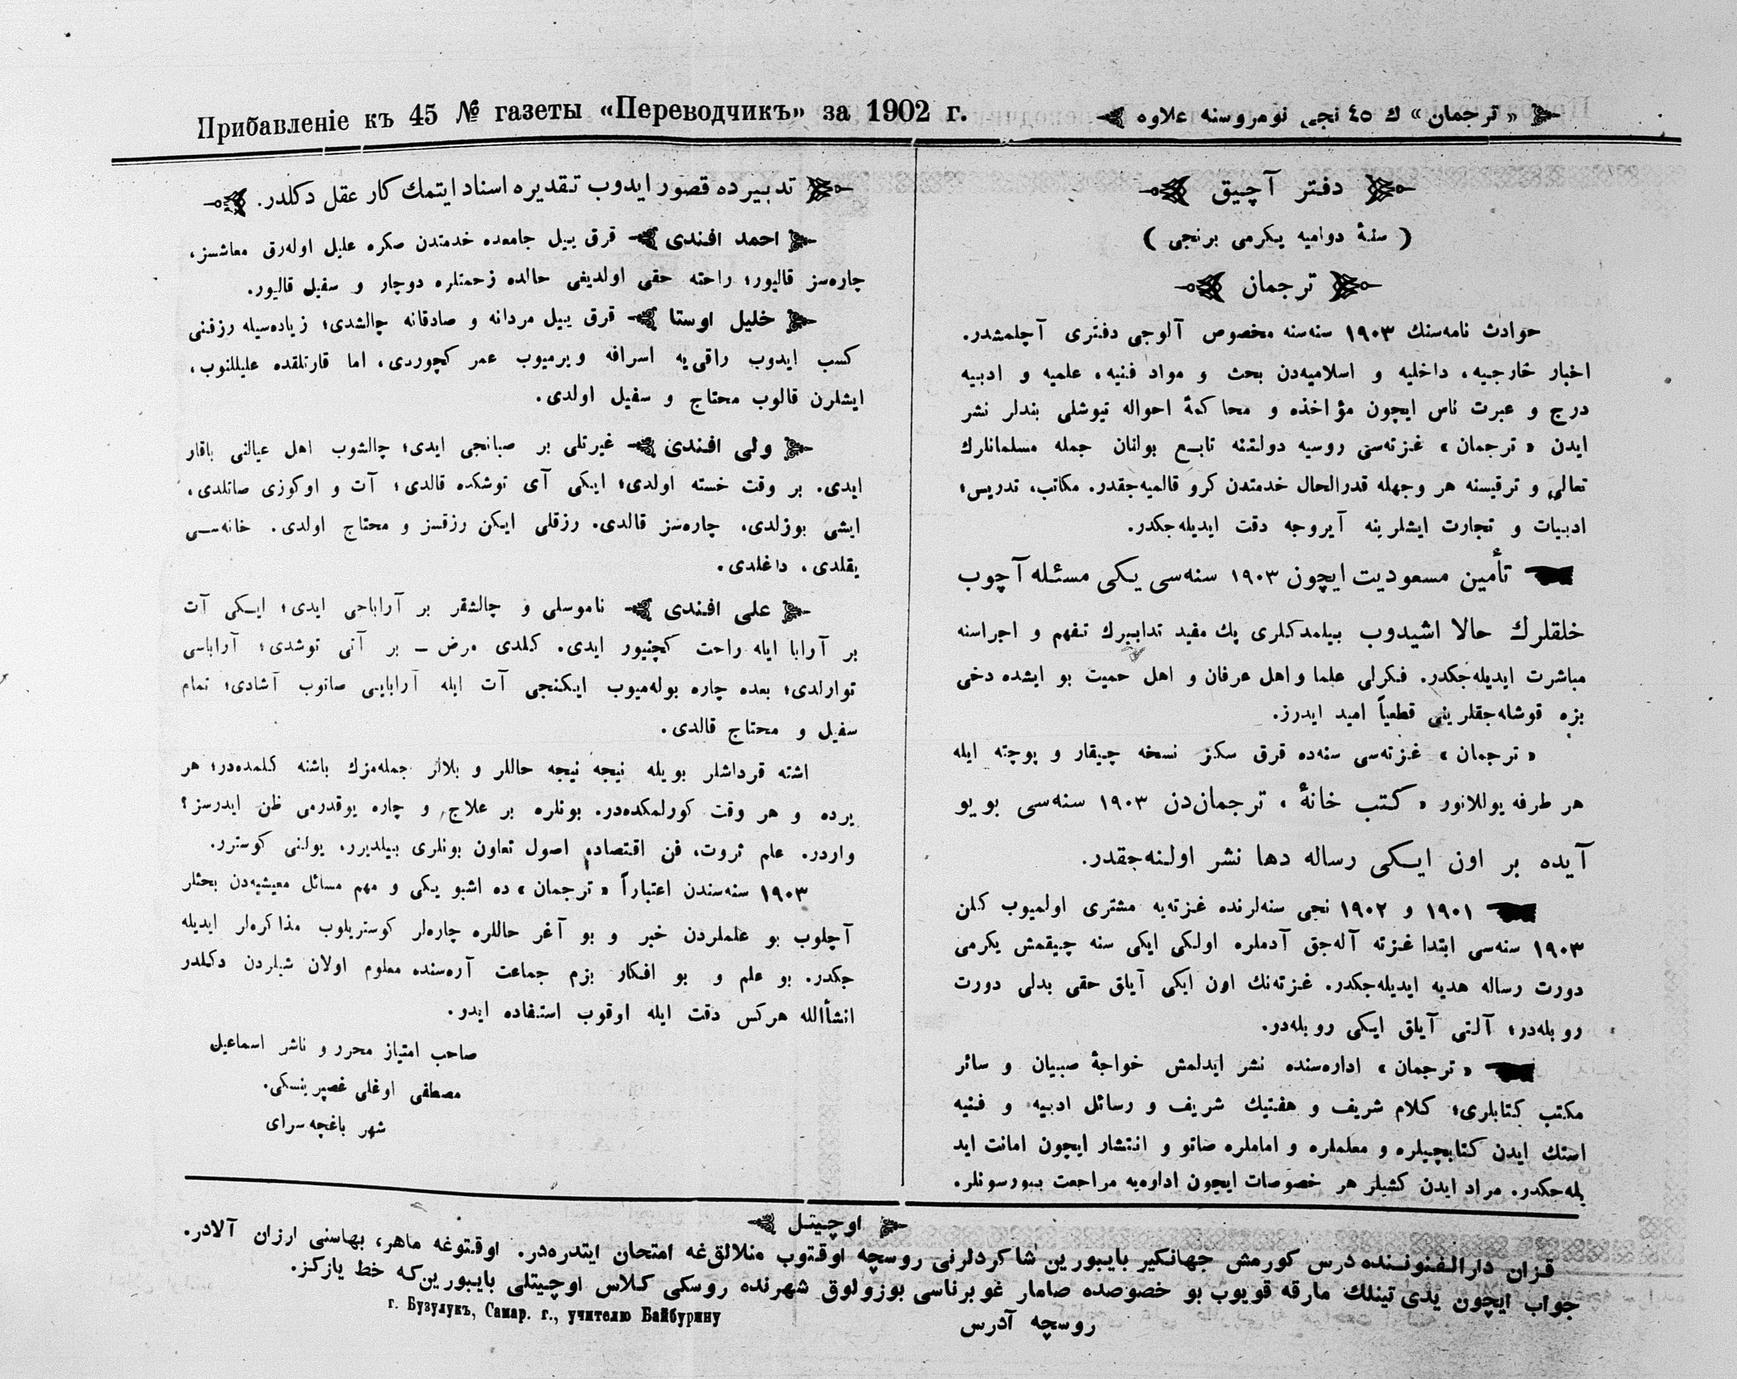 Прибавленіе къ 45 № газеты «Переводчикъ» за 1902 г.
« ترجمان » ك ٤٥ نجی نومروسنه علاوه
دفتر آچیق
( سنهٔ دوامیه یكرمی برنجی )
ترجمان
حوادث نامه‌سنك ١٩٠٣ سنه‌سنه مخصوص آلوجی دفتری آچلمشدر.
اخبار خارجیه، داخلیه و اسلامیه‌دن بحث و مواد فنیه، علمیه و ادبیه
درج و عبرت ناس ایچون مؤاخذه و محاكمهٔ احواله تیوشلی بندلر نشر
ایدن « ترجمان » غزته‌سی روسیه دولتنه تابع بولنان جمله مسلمانلرك
تعالی و ترقیسنه هر وجهله قدرالحال خدمتدن كرو قالمیه‌جقدر. مكاتب، تدریس؛
ادبیات و تجارت ایشلرینه آیروجه دقت ایدیله‌جكدر.
تأمین مسعودیت ایچون ١٩٠٣ سنه‌سی یكی مسئله آچوب
خلقلرك حالا اشیدوب بیلمدكلری پك مفید تدابیرك تفهم و اجراسنه
مباشرت ایدیله‌جكدر. فكرلی علما و اهل عرفان و اهل حمیت بو ایشده دخی
بزه قوشله‌جقلرینی قطعیاً امید ایدرز.
« ترجمان » غزته‌سی سنه‌ده قرق سكز نسخه چیقار و پوچته ایله
هر طرفه یوللانور « كتب خانهٔ » ترجمان‌دن ١٩٠٣ سنه‌سی بویو
آیده بر اون ایكی رساله دها نشر اولنه‌جقدر.
١٩٠١ و ١٩٠٢ نجی سنه‌لرنده غزته‌یه مشتری اولمیوب كلن
١٩٠٣ سنه‌سی ابتدا غزته آله‌جق آدملره اولكی ایكی سنه چیقمش یكرمی
دورت رساله هدیه ایدیله‌جكدر. غزته‌نك اون ایكی آیلق حقی بدلی دورت
روبله‌در؛ آلتی آیلق ایكی روبله‌در.
« ترجمان » اداره‌سنده نشر ایدلمش خواجهٔ صبیان و سائر
مكتب كتابلری؛ كلام شریف و هفتیك شریف و رسائل ادبیه و فنیه
استك ایدن كتابچیلره و معلملره و اماملره صاتو و انتشار ایچون امانت اید
یله‌جكدر. مراد ایدن كشیلر هر خصوصات ایچون اداره‌یه مراجعت بیورسونلر.
تدبیرده قصور ایدوب تقدیره اسناد ایتمك كار عقل دكلدر.
احمد افندی قرق ییل جامعده خدمتدن صكره علیل اوله‌رق معاشسز،
چاره‌سز قالیور؛ راحته حقی اولدیغی حالده زحمتلره دوچار و سفیل قالیور.
خلیل اوستا قرق ییل مردانه و صادقانه چالشدی؛ زیاده‌سیله رزقنی
كسب ایدوب راقی‌یه اسرافه ویرمیوب عمر كچوردی، اما قارتلقده علیللنوب،
ایشلرن قالوب محتاج و سفیل اولدی.
ولی افندی غیرتلی بر صبانجی ایدی؛ چالشوب اهل عیالنی باقار
ایدی. بر وقت خسته اولدی؛ ایكی آی توشكده قالدی؛ آت و اوكوزی صاتلدی،
ایشی بوزلدی، چاره‌سز قالدی. رزقلی ایكن رزقسز و محتاج اولدی. خانه‌سی
یقلدی، داغلدی.
علی افندی ناموسلی و چالشقر بر آراباجی ایدی؛ ایكی آت
بر آرابا ایله راحت كچنیور ایدی. كلدی مرض ــ بر آتی توشدی؛ آراباسی
توارلدی؛ بعده چاره بوله‌میوب ایكنجی آت ایله آرابایی صاتوب آشادی؛ تمام
سفیل و محتاج قالدی.
اشته قرداشلر بویله نیجه نیجه حاللر و بلالر جمله‌مزك باشنه كلمده‌در؛ هر
یرده و هر وقت كورلمكده‌در. بونلره بر علاج و چاره یوقدرمی ظن ایدرسز؟
واردر. علم ثروت، فن اقتصاد، اصول تعاون بونلری بیلدیرر، یولنی كوسترر.
١٩٠٣ سنه‌سندن اعتباراً « ترجمان » ده اشبو یكی و مهم مسائل معیشیه‌دن بحثلر
آچلوب بو علملردن خبر و بو آغر حاللره چاره‌لر كوستریلوب مذاكره‌لر ایدیله
جكدر. بو علم و بو افكار بزم جماعت آره‌سنده معلوم اولان شیلردن دكلدر
انشأالله هركس دقت ایله اوقوب استفاده ایدر.
صاحب امتیاز محرر و ناشر اسماعیل
مصطفی اوغلی غصپرینسكی.
شهر باغچه‌سرای
اوچیتل
قزان دارالفنوننده درس كورمش جهانكیر بایبورین شاكردلرنی روسچه اوقتوب منلالق‌غه امتحان ایتدره‌در. اوقتوغه ماهر، بهاسنی ارزان آلادر.
جواب ایچون یدی تینلك مارقه قویوب بو خصوصده صامار غوبرناسی بوزولوق شهرنده روسكی كلاس اوچیتلی بایبورین‌كه خط یازكز.
روسچه آدرس
г. Бузулукъ, Самар. г., учителю Байбурину